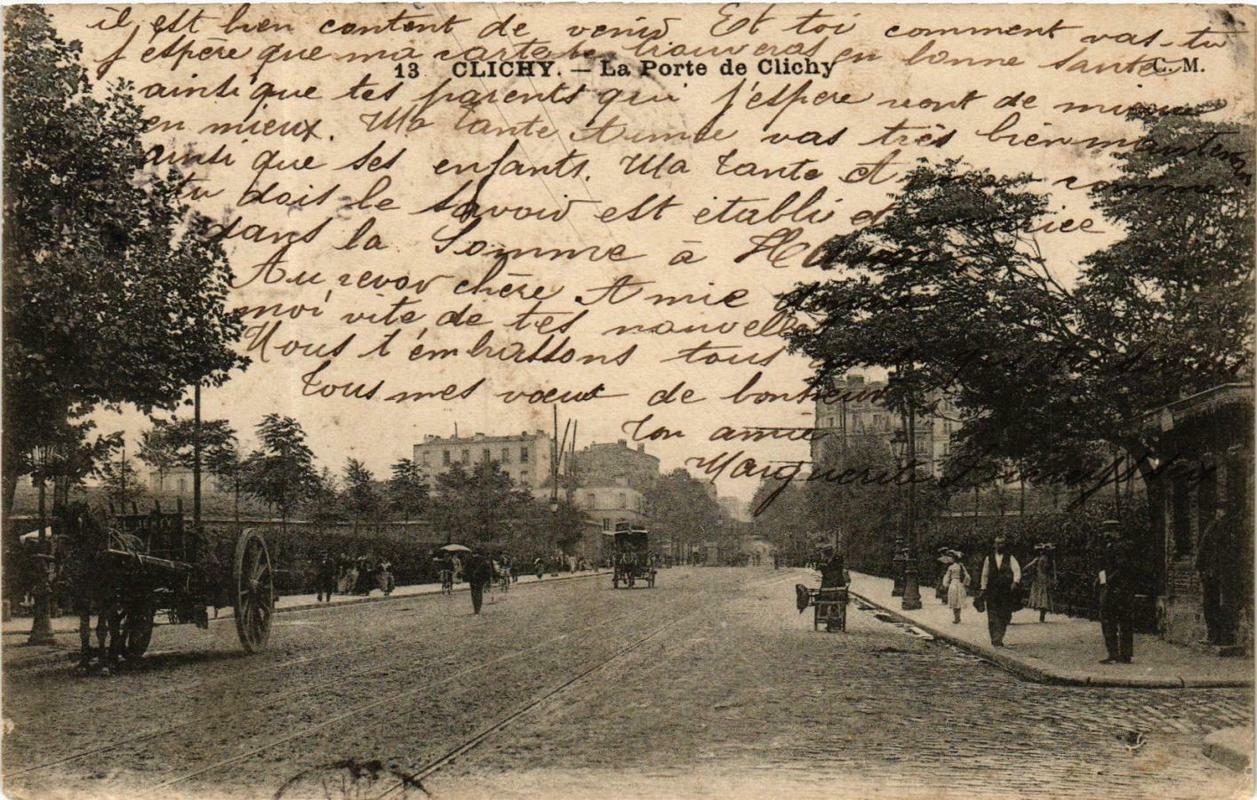 il est bien content de venir Et toi comment vas-tu
J'espère que ma carte te trouveras en bonne santé
13 CLICHY. — La Porte de Clichy C. M.
ainsi que tes parents qui j'espère vont de mieux
en mieux. Ma tante Aimée vas très bien maintenant
ainsi que ses enfants. Ma tante et comme
tu dois le savoir est établi
dans la Somme à
Au revoir chère Amie donne
moi vite de tes nouvelles
Nous t'embrassons tous
Tous mes vœux de bonheur
Ton amie
Marguerite